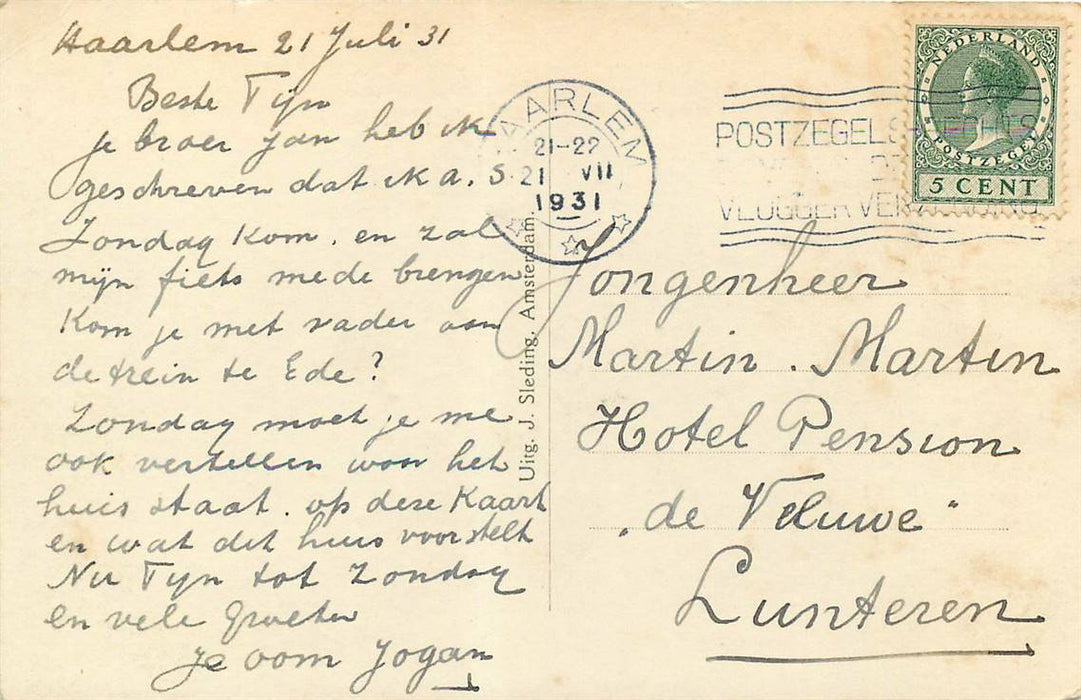 Haarlem 21 Juli 31
Beste Tijn
Je broer Jan heb ik
geschreven dat ik a. s
Zondag kom. en zal
mijn fiets mede brengen
Kom je met vader aan
de trein te Ede?
Zondag moet je me
ook vertellen waar het
huis staat. op deze Kaart
en wat dit huis voorstelt
Nu Tijn tot Zondag
en vele Groeten
Je oom Jogan
Uitg. J. Sleding, Amsterdam
HAARLEM
21-22
21 VII
1931
POSTZEGELS RECHTS
VLUGGER
NEDERLAND
POSTZEGEL
5 CENT
Jongenheer
Martin. Martin
Hotel Pension
„de Veluwe"
Lunteren